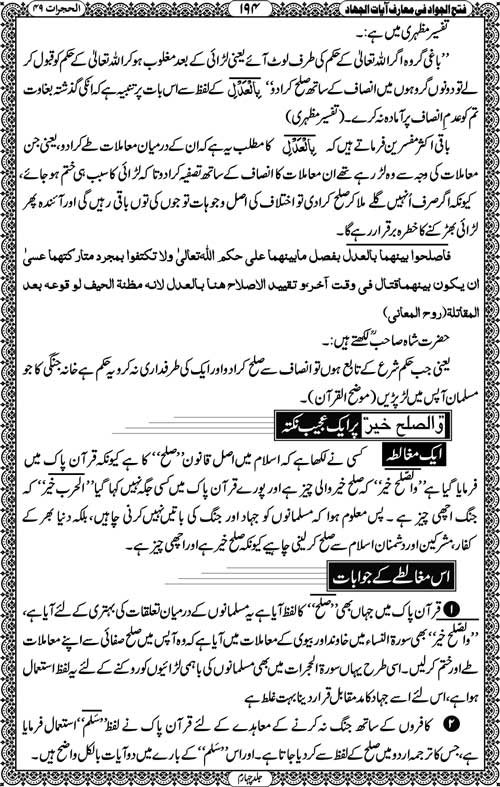 فتح الجواد فی معارف آیات الجہاد
۱۹۴
الحجرات ۴۹
تفسیر مظہری میں ہے:۔
”باغی گروہ اگر اللہ تعالیٰ کے حکم کی طرف لوٹ آئے یعنی لڑائی کے بعد مغلوب ہو کر اللہ تعالیٰ کے حکم کو قبول کر
لے تو دونوں گروہوں میں انصاف کے ساتھ صلح کرادو“ بِالْعَدْلِ کے لفظ سے اس بات پر تنبیہ ہے کہ انکی گذشتہ بغاوت
تم کو عدمِ انصاف پر آمادہ نہ کرے۔ (تفسیر مظہری)
باقی اکثر مفسرین فرماتے ہیں کہ بِالْعَدْلِ کا مطلب یہ ہے کہ ان کے درمیان معاملات طے کرادو، یعنی جن
معاملات کی وجہ سے وہ لڑ رہے تھے ان معاملات کا انصاف کے ساتھ تصفیہ کرادو تاکہ لڑائی کا سبب ہی ختم ہو جائے،
کیونکہ اگر صرف انہیں گلے ملا کر صلح کرادی تو اختلاف کی اصل وجوہات تو جوں کی توں باقی رہیں گی اور آئندہ پھر
لڑائی بھڑکنے کا خطرہ برقرار رہے گا۔
فاصلحوا بینهما بالعدل بفصل مابینهما علی حکم اللہ تعالیٰ ولا تکتفوا بمجرد متارکتهما عسیٰ
ان یکون بینهماقتال فی وقت آخرو تقیید الاصلاح هنا بالعدل لانه مظنة الحیف لو قوعه بعد
المقاتلة (روح المعانی)
حضرت شاہ صاحبؒ لکھتے ہیں:۔
یعنی جب حکم شرع کے تابع ہوں تو انصاف سے صلح کرادو اور ایک کی طرفداری نہ کرو یہ حکم ہے خانہ جنگی کا جو
مسلمان آپس میں لڑ پڑیں (موضح القرآن)۔
والصلح خیر پر ایک عجیب نکتہ
ایک مغالطہ کسی نے لکھا ہے کہ اسلام میں اصل قانون ”صلح“ کا ہے کیونکہ قرآن پاک میں
فرمایا گیا ہے ”والصلح خیر“ کہ صلح خیر والی چیز ہے اور پورے قرآن پاک میں کسی جگہ نہیں کہا گیا ”الحرب خیر“ کہ
جنگ اچھی چیز ہے۔ پس معلوم ہوا کہ مسلمانوں کو جہاد اور جنگ کی باتیں نہیں کرنی چاہئیں، بلکہ دنیا بھر کے
کفار، مشرکین اور دشمنان اسلام سے صلح کر لینی چاہیے کیونکہ صلح خیر ہے اور اچھی چیز ہے۔
اس مغالطے کے جوابات
۱ قرآن پاک میں جہاں بھی ”صلح“ کا لفظ آیا ہے یہ مسلمانوں کے درمیان تعلقات کی بہتری کے لئے آیا ہے،
”والصلح خیر“ بھی سورۃ النساء میں خاوند اور بیوی کے معاملات میں آیا ہے کہ وہ آپس میں صلح صفائی سے اپنے معاملات
طے اور ختم کر لیں۔ اسی طرح یہاں سورۃ الحجرات میں بھی مسلمانوں کی باہمی لڑائیوں کو روکنے کے لئے یہ لفظ استعمال
ہوا ہے، اس لئے اسے جہاد کا مدمقابل قرار دینا بہت غلط ہے
۲ کافروں کے ساتھ جنگ نہ کرنے کے معاہدے کے لئے قرآن پاک نے لفظ ”سَلم“ استعمال فرمایا
ہے، جس کا ترجمہ اردو میں صلح کے لفظ سے کر دیا جاتا ہے۔ اور اس ”سلم“ کے بارے میں دو آیات بالکل واضح ہیں۔
جلد چہارم